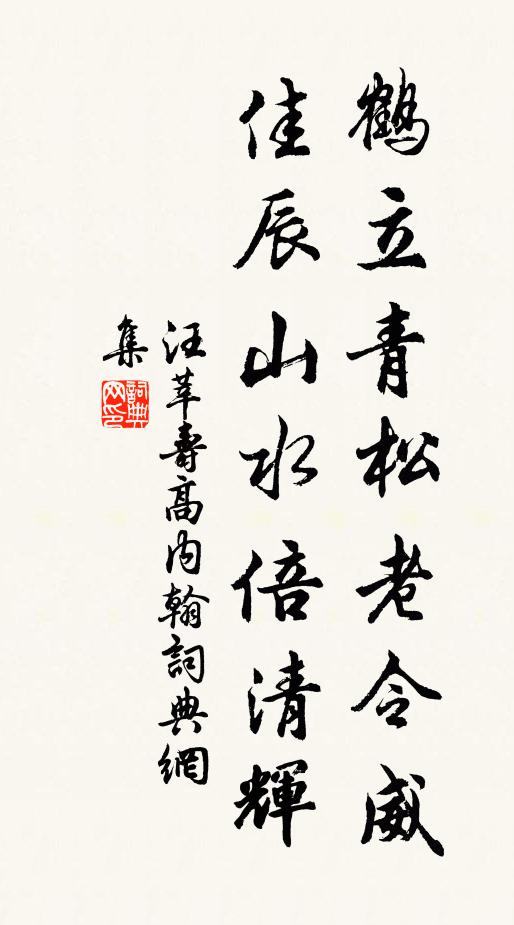 鶴立青松老令威
佳辰山水倍清輝
汪莘壽高内翰詞典網
集
詞典
网印